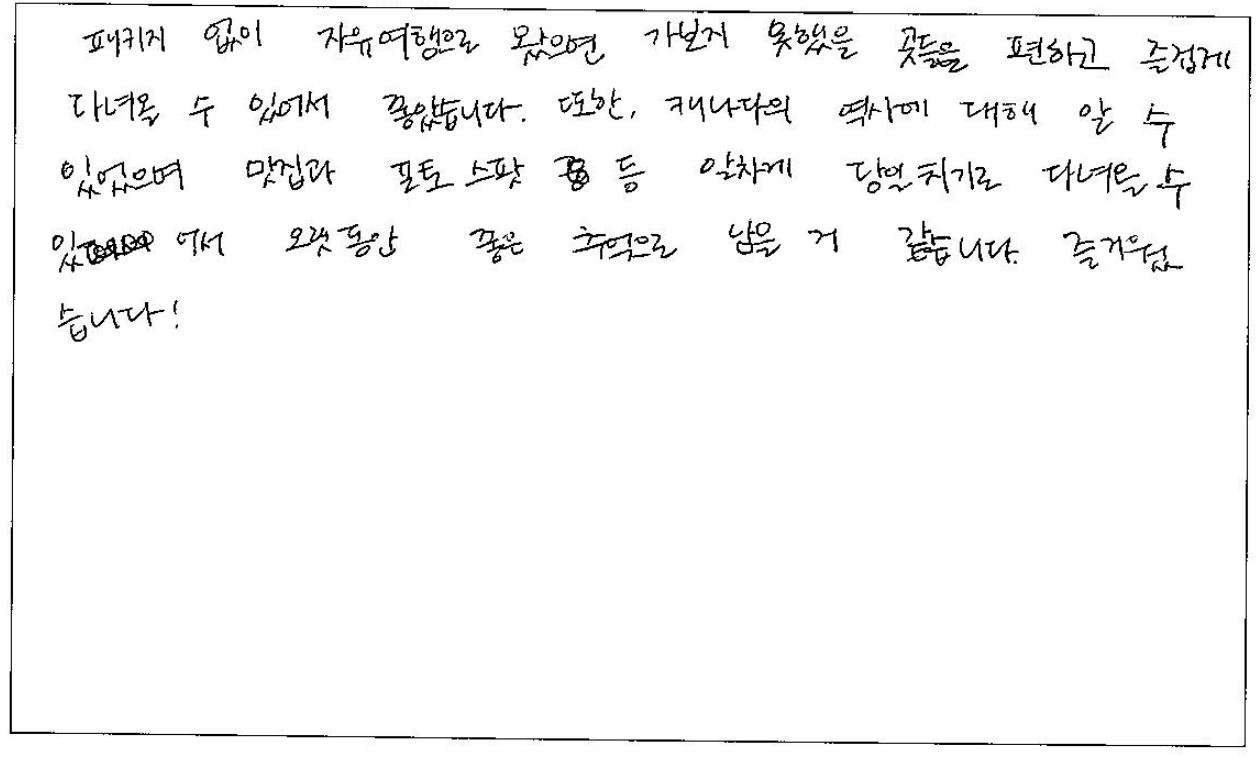 패키지 없이 자유여행으로 왔으면 가보지 못했을 곳들을 편하고 즐겁게
다녀올 수 있어서 좋았습니다. 또한, 캐나다의 역사에 대해 알 수
있었으며 맛집과 포토 스팟 등 알차게 당일치기로 다녀올 수
있어서 오랫동안 좋은 추억으로 남을 거 같습니다. 즐거웠
습니다!